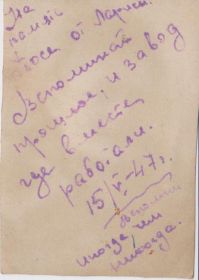 На
память
Тосе от Ларисы.
Вспоминай
прошлое, и завод
где вместе
работали.
15/V-47г.
Вспомни
иногда, чем
никогда.